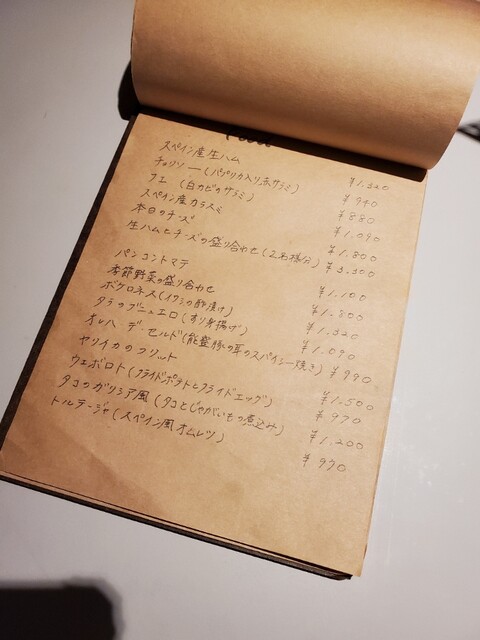 Food
スペイン産生ハム ¥1.320
チョリソー(パプリカ入り赤サラミ) ¥940
フエ (白カビのサラミ) ¥880
スペイン産カラスミ ¥1.090
本日のチーズ ¥1.800
生ハムとチーズの盛り合わせ(2名様分) ¥3.300
パンコントマテ ¥1.100
季節野菜の盛り合わせ ¥1.800
ボケロネス(イワシの酢漬け) ¥1.320
タラのブニュエロ(すり身揚げ) ¥1.090
オレハ デ セルド(能登豚の耳のスパイシー焼き) ¥990
ヤリイカのフリット ¥1.500
ウエボロト(フライドポテトとフライドエッグ) ¥970
タコのガリシア風(タコとじゃがいもの煮込み) ¥1.200
トルテージャ(スペイン風オムレツ) ¥970